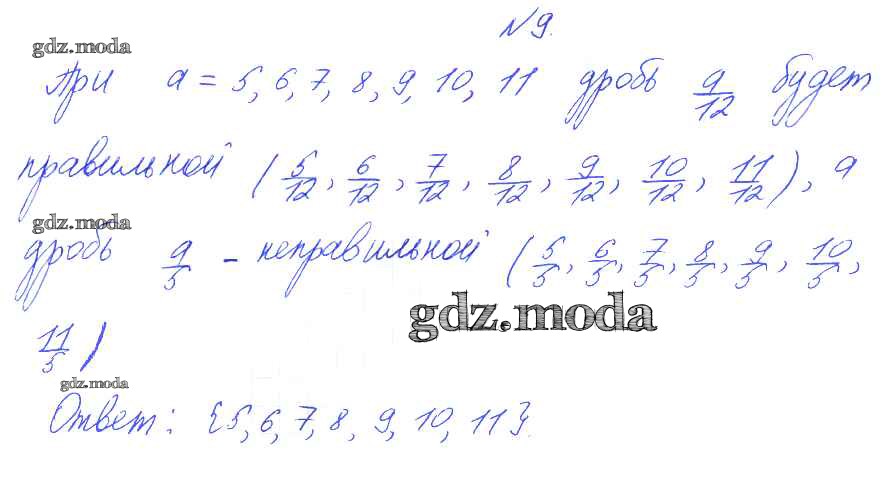 №9.
gdz.moda
При a = 5, 6, 7, 8, 9, 10, 11 дробь a/12 будет
правильной (5/12, 6/12, 7/12, 8/12, 9/12, 10/12, 11/12), а
gdz.moda
дробь a/5 - неправильной (5/5, 6/5, 7/5, 8/5, 9/5, 10/5,
gdz.moda
11/5)
gdz.moda
Ответ: {5, 6, 7, 8, 9, 10, 11}.